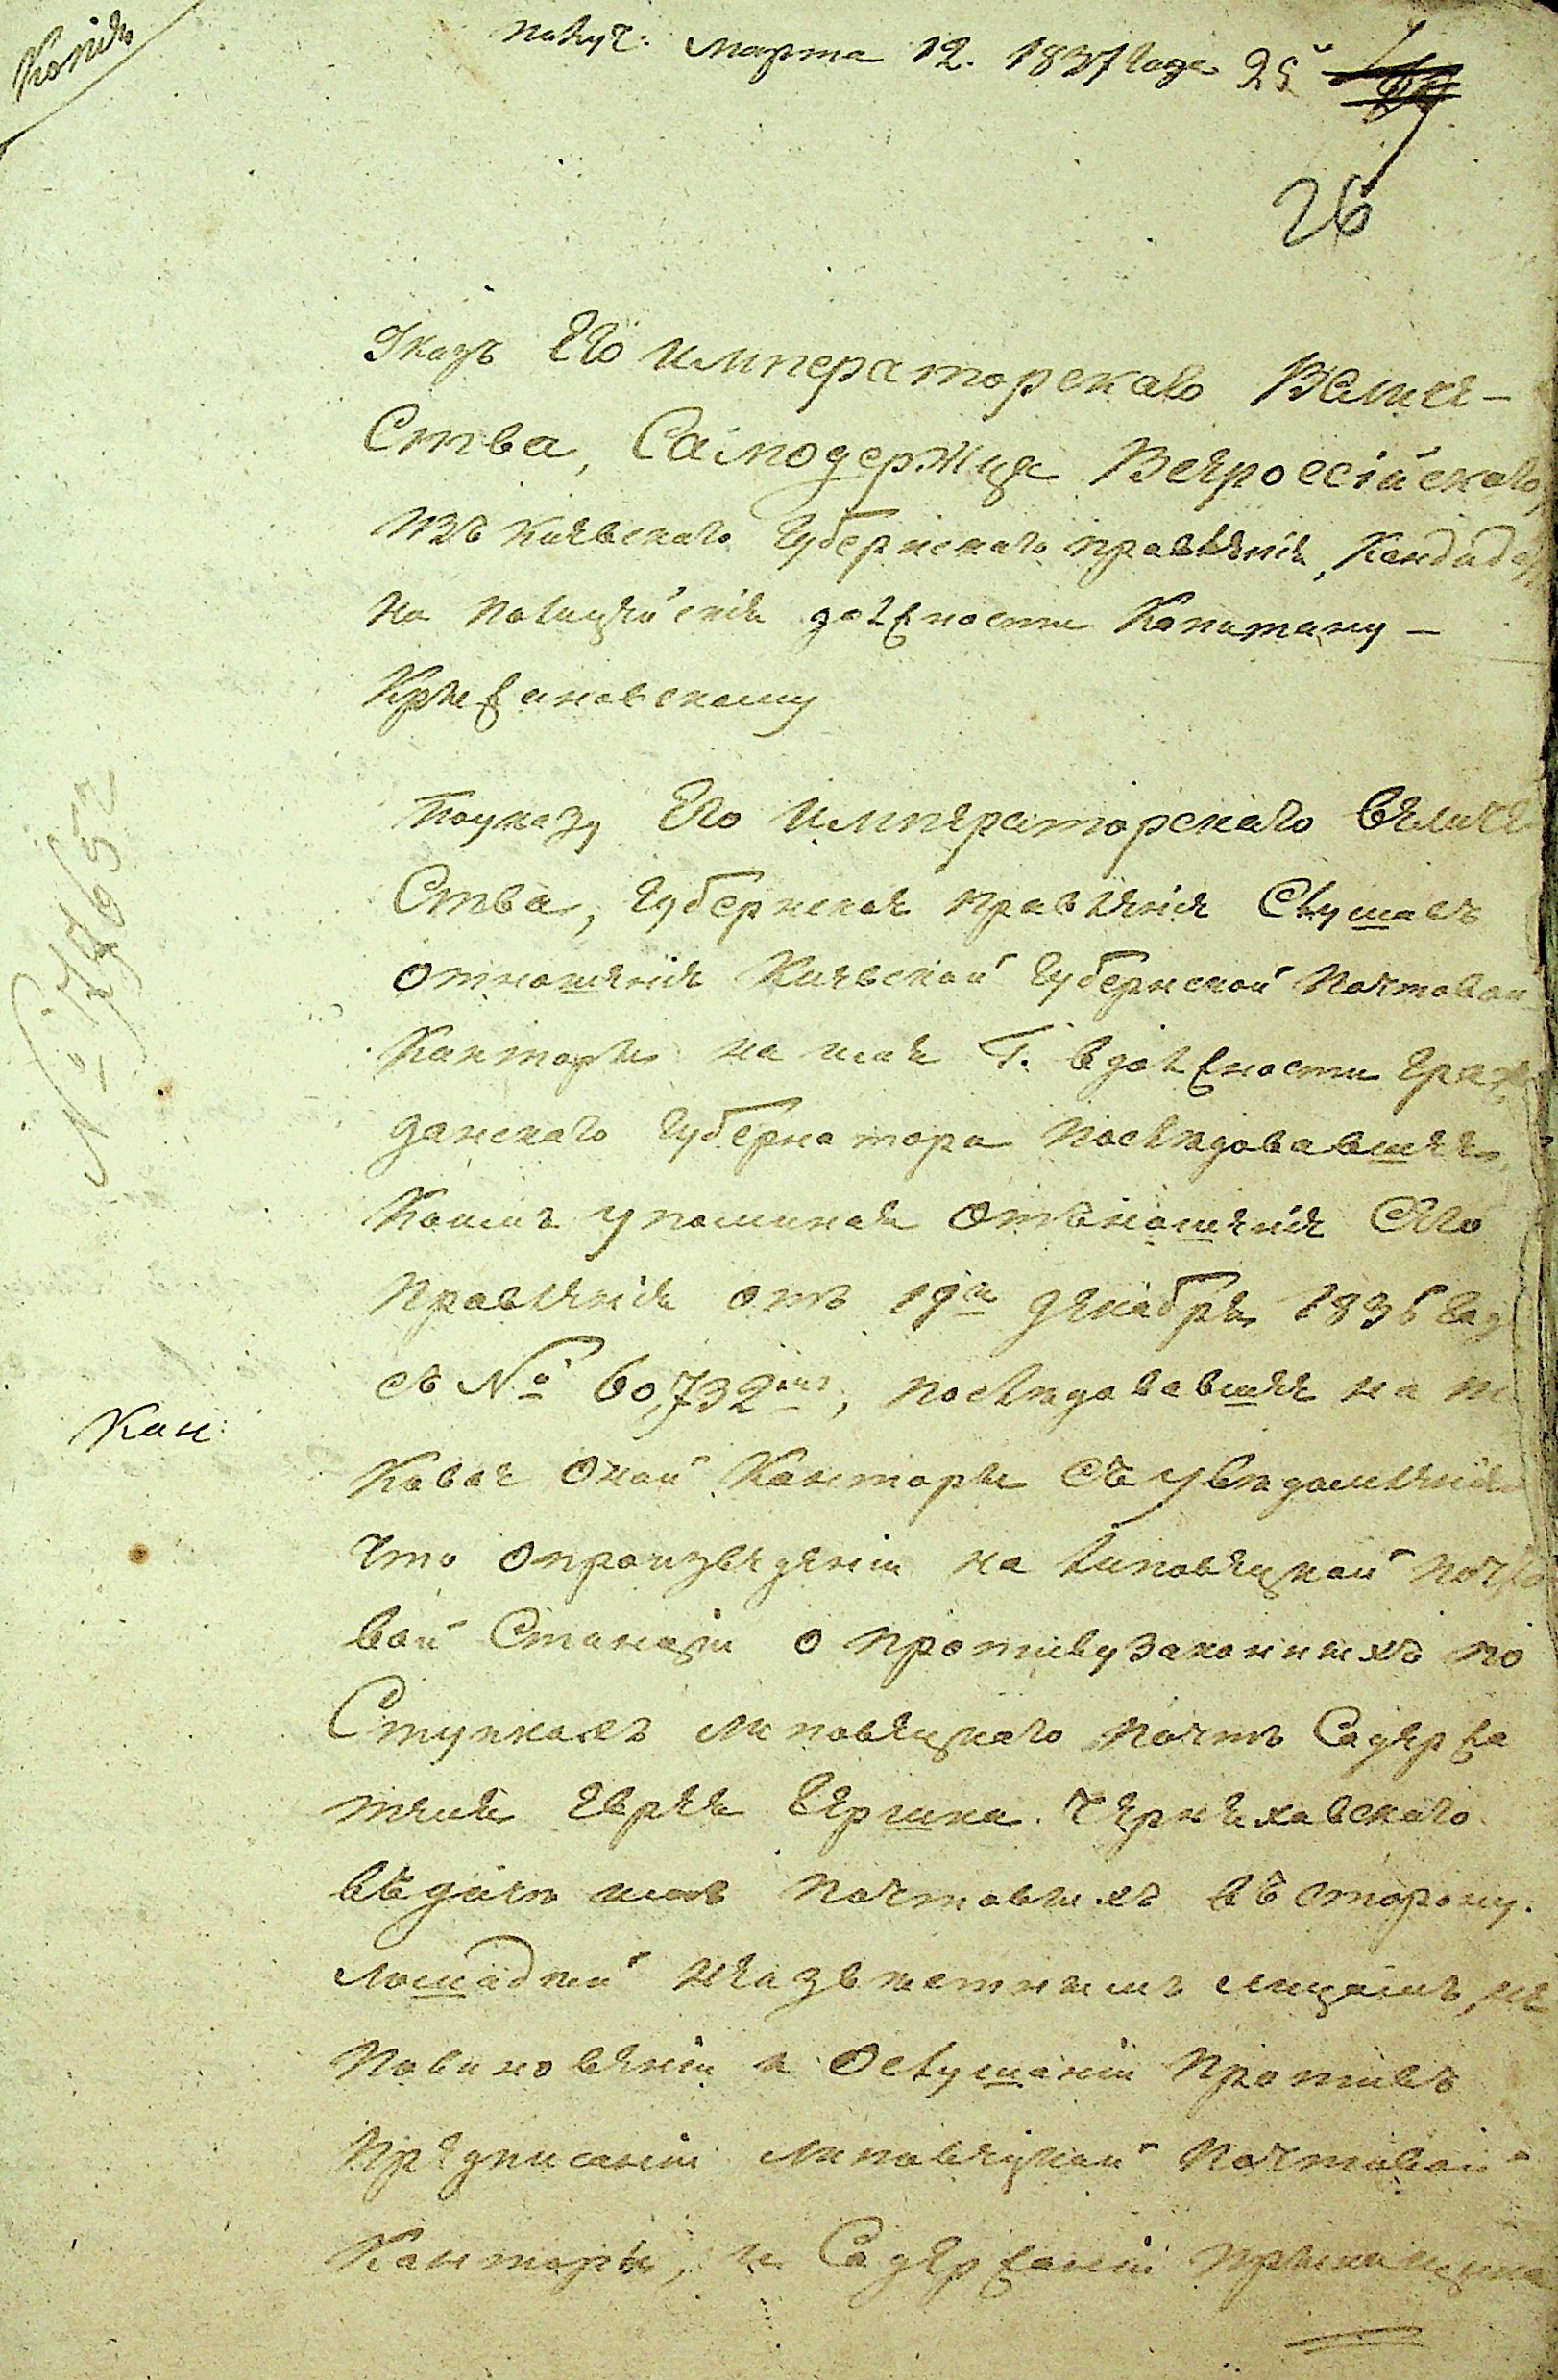 Копія
Получ: марта 12. 1837 года 25
26
Указъ Его Императорскаго Величе-
Ства, Самодержца Всероссійскаго,
Изъ Кіевскаго Губернскаго правленія, Кандидату
на полицейскія должности Капитану -
Крыжановскому
По указу Его Императорскаго Величе
Ства, Губернское правленіе Слушавъ
отношеніе Кіевской Губернской Почтовой
Канторы на имя Г. в должности Граж
данскаго Губернатора последовавшее,
Коимъ упоминая Отъношеніе Сего
Правленія отъ 19го декабря 1836 год
съ № 60,732мъ, последовавшее на та
Кавое оной Канторы съ уведомленіем
что опроизведеніи на Липовецкой почто
вой Станціи о противузаконныхъ по
Ступкахъ Липовецкаго почтъ Садержа
теля Еврея Бершка Черняховскаго
въдачи имъ почтовыхъ въ сторону
лошадей неизвестнымъ лицамъ, не
повиновеніи и Ослушаніи противъ
предписаніи Липовецкой почтовой
Канторы, и Садержаніи
№ 17652
Кан: